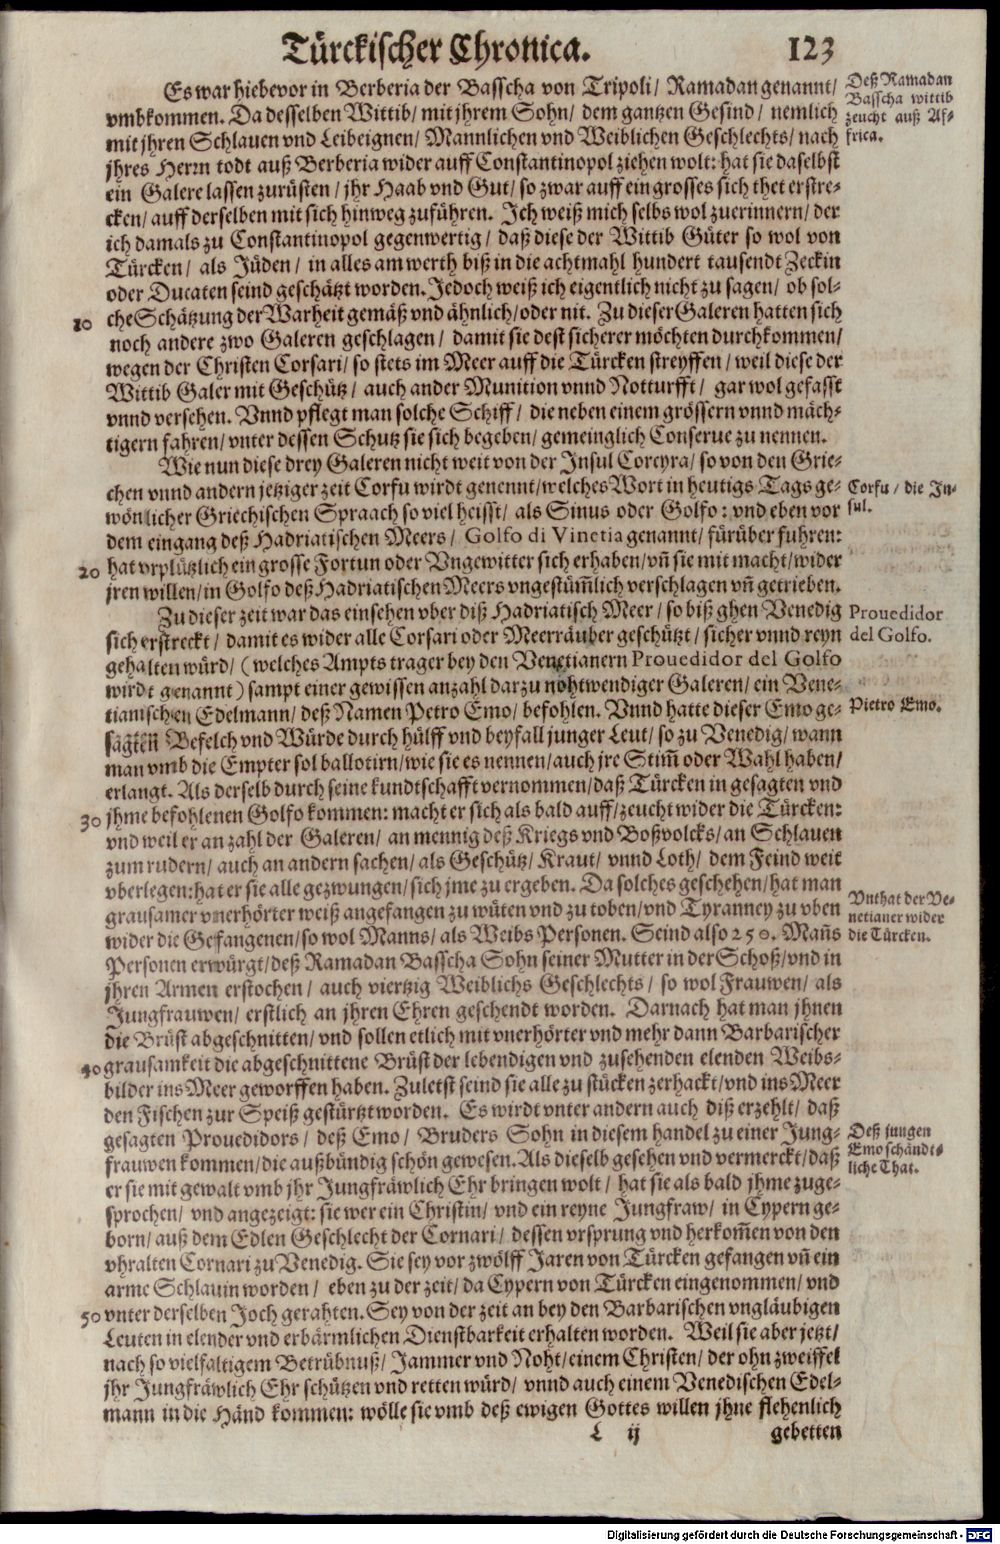 Türckischer Chronica. 123
Es war hiebevor in Berberia der Basscha von Tripoli/ Ramadan genannt/
vmbkommen. Da desselben Wittib/ mit jhrem Sohn/ dem gantzen Gesind/ nemlich
mit jhren Schlauen vnd Leibeignen/ Mannlichen vnd Weiblichen Geschlechts/ nach
jhres Herrn todt auß Berberia wider auff Constantinopol ziehen wolt: hat sie daselbst
ein Galere lassen zurüsten/ jhr Haab vnd Gut/ so zwar auff ein grosses sich thet erstre-
cken/ auff derselben mit sich hinweg zuführen. Ich weiß mich selbs wol zuerinnern/ der
ich damals zu Constantinopol gegenwertig/ daß diese der Wittib Güter so wol von
Türcken/ als Jüden/ in alles am werth biß in die achtmahl hundert tausendt Zeckin
oder Ducaten seind geschätzt worden. Jedoch weiß ich eigentlich nicht zu sagen/ ob sol-
10 che Schätzung der Warheit gemäß vnd ähnlich/ oder nit. Zu dieser Galeren hatten sich
noch andere zwo Galeren geschlagen/ damit sie dest sicherer möchten durchkommen/
wegen der Christen Corsari/ so stets im Meer auff die Türcken streyffen/ weil diese der
Wittib Galer mit Geschütz/ auch ander Munition vnnd Notturfft/ gar wol gefasst
vnnd versehen. Vnnd pflegt man solche Schiff/ die neben einem grössern vnnd mäch-
tigern fahren/ vnter dessen Schutz sie sich begeben/ gemeinglich Conserue zu nennen.
Wie nun diese drey Galeren nicht weit von der Insul Corcyra/ so von den Grie-
chen vnnd andern jetziger zeit Corfu wirdt genennt/ welches Wort in heutigs Tags ge-
wönlicher Griechischen Spraach so viel heisst/ als Sinus oder Golfo: vnd eben vor
dem eingang deß Hadriatischen Meers/ Golfo di Vinetia genannt/ fürüber fuhren:
20 hat vrplützlich ein grosse Fortun oder Vngewitter sich erhaben/ vn̄ sie mit macht/ wider
jren willen/ in Golfo deß Hadriatischen Meers vngestüm̄lich verschlagen vn̄ getrieben.
Zu dieser zeit war das einsehen vber diß Hadriatisch Meer/ so biß ghen Venedig
sich erstreckt/ damit es wider alle Corsari oder Meerräuber geschützt/ sicher vnnd reyn
gehalten würd/ (welches Ampts trager bey den Venetianern Prouedidor del Golfo
wirdt genannt) sampt einer gewissen anzahl darzu nohtwendiger Galeren/ ein Vene-
tianischen Edelmann/ deß Namen Petro Emo/ befohlen. Vnnd hatte dieser Emo ge-
sagten Befelch vnd Würde durch hülff vnd beyfall junger Leut/ so zu Venedig/ wann
man vmb die Empter sol ballotirn/ wie sie es nennen/ auch jre Stim̄ oder Wahl haben/
erlangt. Als derselb durch seine kundtschafft vernommen/ daß Türcken in gesagten vnd
30 jhme befohlenen Golfo kommen: macht er sich als bald auff/ zeucht wider die Türcken:
vnd weil er an zahl der Galeren/ an mennig deß Kriegs vnd Boßvolcks/ an Schlauen
zum rudern/ auch an andern sachen/ als Geschütz/ Kraut/ vnnd Loth/ dem Feind weit
vberlegen: hat er sie alle gezwungen/ sich jme zu ergeben. Da solches geschehen/ hat man
grausamer vnerhörter weiß angefangen zu wüten vnd zu toben/ vnd Tyranney zu vben
wider die Gefangenen/ so wol Manns/ als Weibs Personen. Seind also 250. Man̄s
Personen erwürgt/ deß Ramadan Basscha Sohn seiner Mutter in der Schoß/ vnd in
jhren Armen erstochen/ auch viertzig Weiblichs Geschlechts/ so wol Frauwen/ als
Jungfrauwen/ erstlich an jhren Ehren geschendt worden. Darnach hat man jhnen
die Brüst abgeschnitten/ vnd sollen etlich mit vnerhörter vnd mehr dann Barbarischer
40 grausamkeit die abgeschnittene Brüst der lebendigen vnd zusehenden elenden Weibs-
bilder ins Meer geworffen haben. Zuletst seind sie alle zu stücken zerhackt/ vnd ins Meer
den Fischen zur Speiß gestürtzt worden. Es wirdt vnter andern auch diß erzehlt/ daß
gesagten Prouedidors/ deß Emo/ Bruders Sohn in diesem handel zu einer Jung-
frauwen kommen/ die außbündig schön gewesen. Als dieselb gesehen vnd vermerckt/ daß
er sie mit gewalt vmb jhr Jungfräwlich Ehr bringen wolt/ hat sie als bald jhme zuge-
sprochen/ vnd angezeigt: sie wer ein Christin/ vnd ein reyne Jungfraw/ in Cypern ge-
born/ auß dem Edlen Geschlecht der Cornari/ dessen vrsprung vnd herkom̄en von den
vhralten Cornari zu Venedig. Sie sey vor zwölff Jaren von Türcken gefangen vn̄ ein
arme Schlauin worden/ eben zu der zeit/ da Cypern von Türcken eingenommen/ vnd
50 vnter derselben Joch gerahten. Sey von der zeit an bey den Barbarischen vngläubigen
Leuten in elender vnd erbärmlichen Dienstbarkeit erhalten worden. Weil sie aber jetzt/
nach so vielfaltigem Betrübnuß/ Jammer vnd Noht/ einem Christen/ der ohn zweiffel
jhr Jungfräwlich Ehr schützen vnd retten würd/ vnnd auch einem Venedischen Edel-
mann in die Händ kommen: wölle sie vmb deß ewigen Gottes willen jhne flehenlich
L ij gebetten
Deß Ramadan
Basscha wittib
zeucht auß Af-
frica.
Corfu/ die In-
sul.
Prouedidor
del Golfo.
Pietro Emo.
Vnthat der Ve-
netianer wider
die Türcken.
Deß jungen
Emo schändt-
liche That.
Digitalisierung gefördert durch die Deutsche Forschungsgemeinschaft - DFG